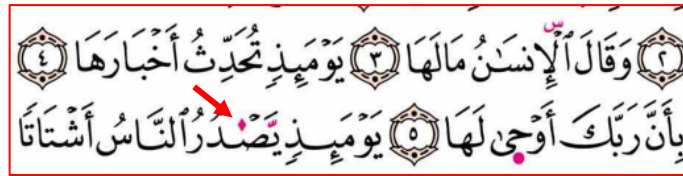 ٢ وَقَالَ ٱلْإِنسَٰنُ مَالَهَا ٣ يَوْمَئِذٍ تُحَدِّثُ أَخْبَارَهَا ٤
بِأَنَّ رَبَّكَ أَوْحَىٰ لَهَا ٥ يَوْمَئِذٍ يَصْدُرُ ٱلنَّاسُ أَشْتَاتًا